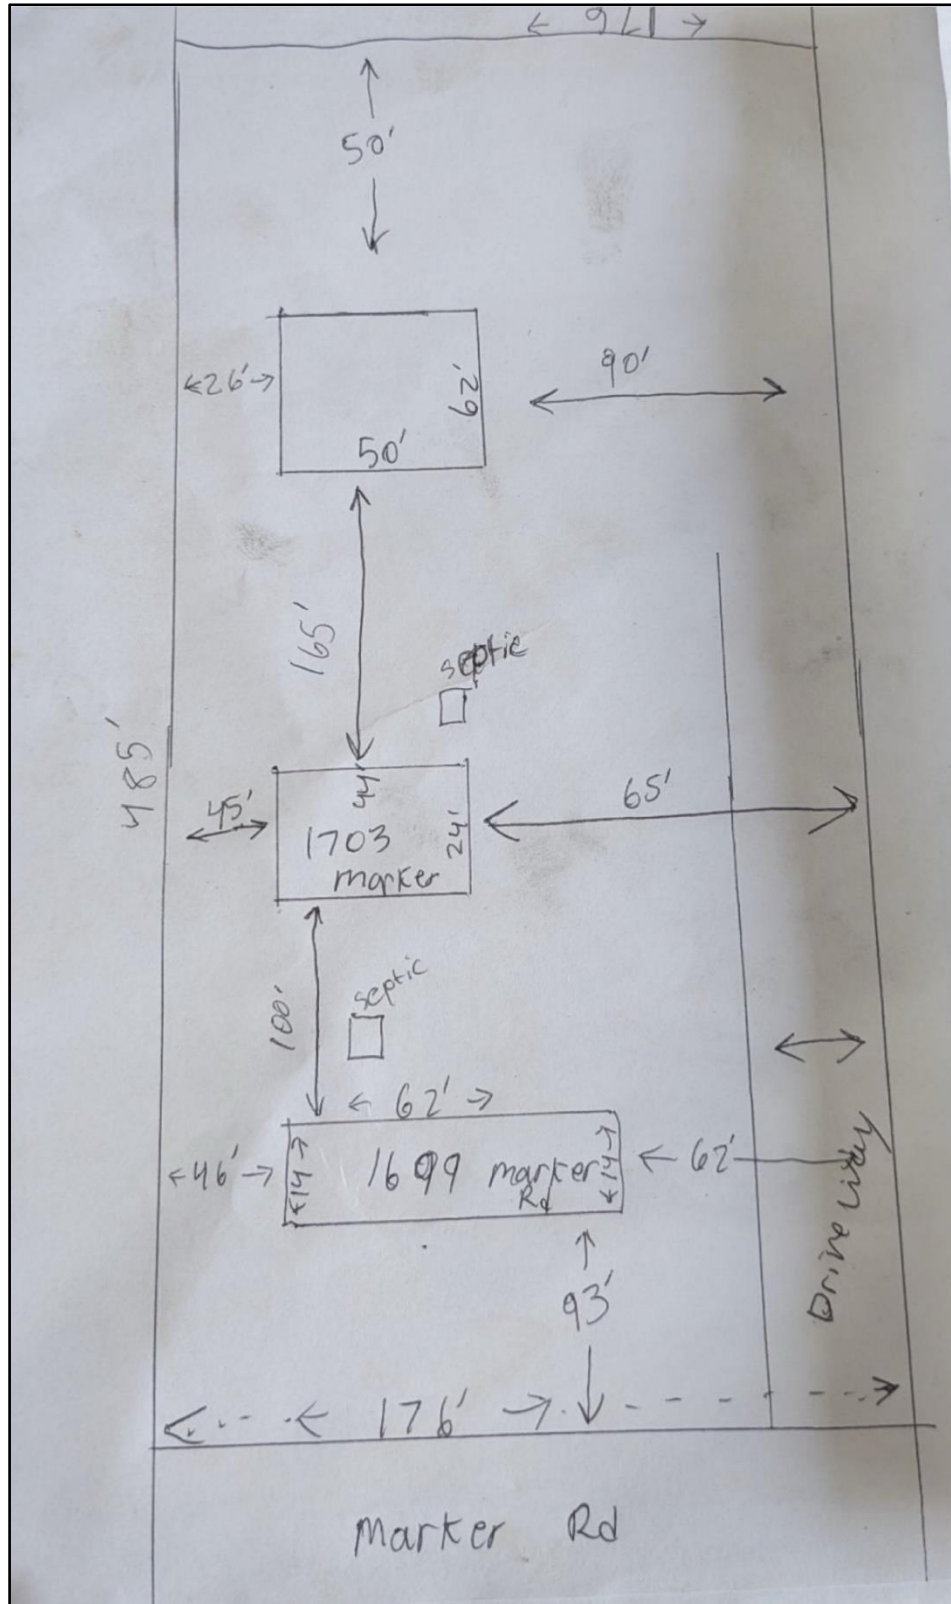 ← 176 →
50'
←26'→
62'
90'
50'
165'
septic
485'
45'
44'
1703
marker
24'
65'
100'
septic
← 62' →
←46'→
←14→
1699 marker
Rd
←14→
← 62'
Driveway
93'
← 176' →
Marker Rd